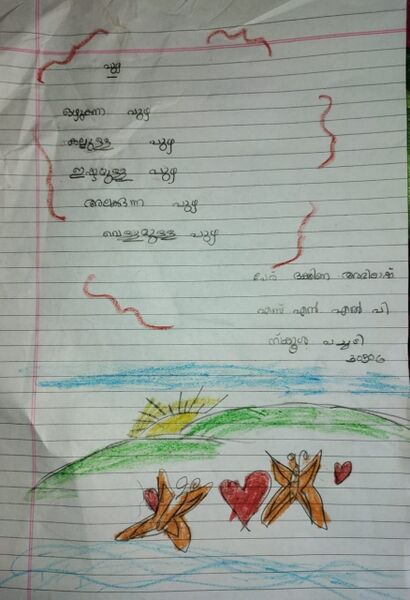 പുഴ
ഒഴുകുന്ന പുഴ
കല്ലുള്ള പുഴ
ഇഷ്ടമുള്ള പുഴ
അലക്കുന്ന പുഴ
വെള്ളമുള്ള പുഴ
പേര് ദക്ഷിണ
എസ് എൻ എൽ പി
സ്കൂൾ പച്ചടി